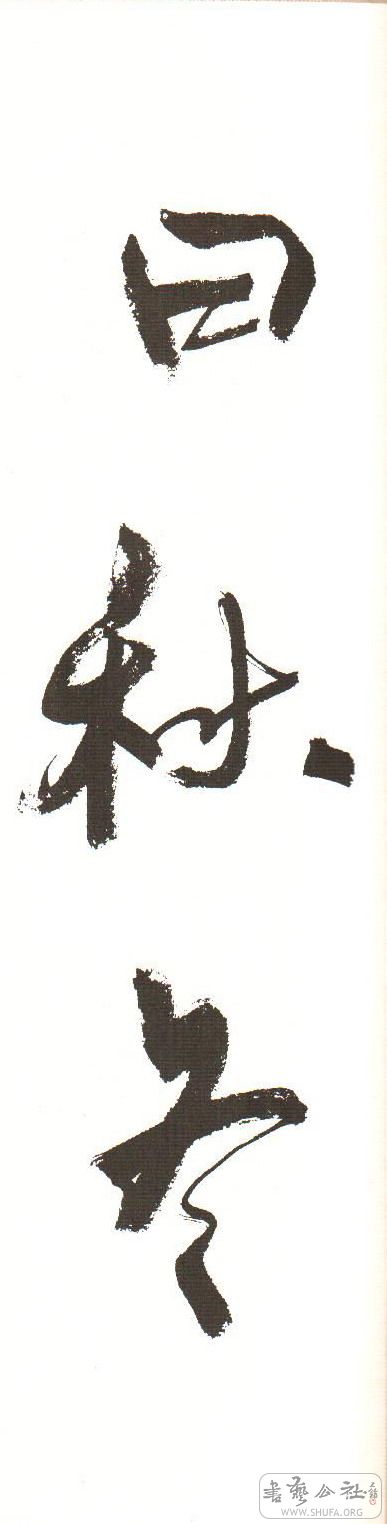 曰秋冬
書藝公社
WWW.SHUFA.ORG